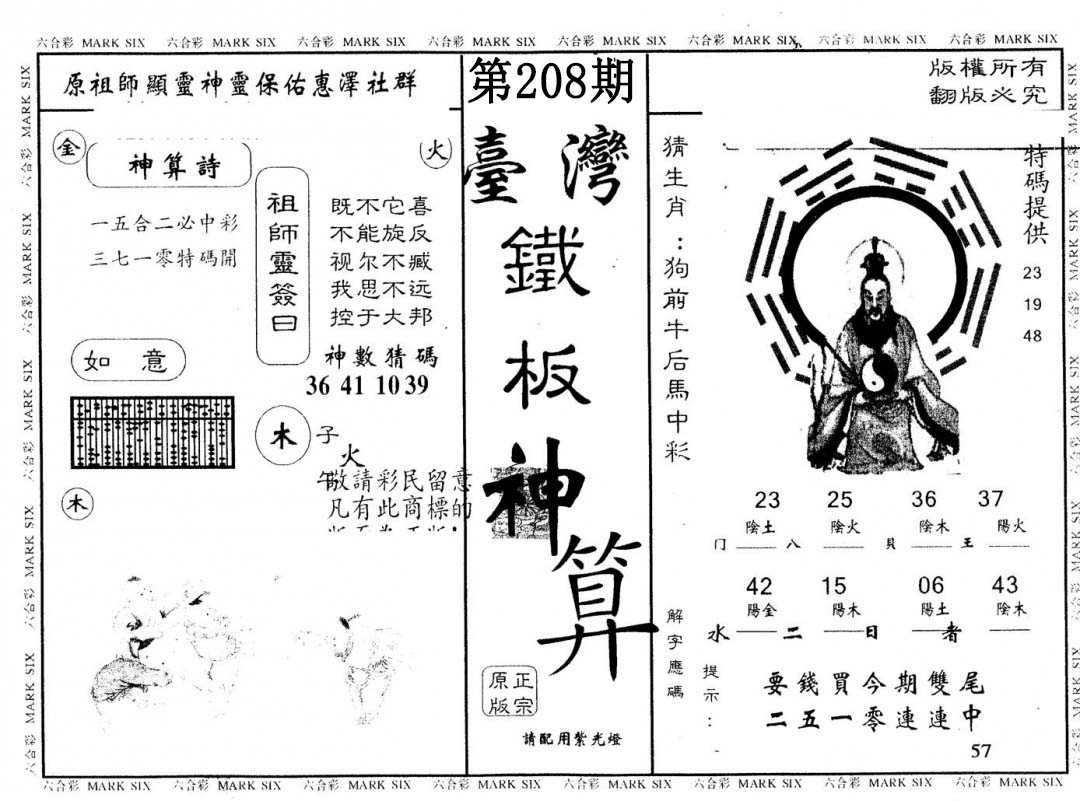 六合彩 MARK SIX 六合彩 MARK SIX 六合彩 MARK SIX 六合彩 MARK SIX 六合彩 MARK SIX 六合彩 MARK SIX 六合彩 MARK SIX 六合彩 MARK SIX
原祖師顯靈神靈保佑惠澤社群
金
神算詩
火
一五合二必中彩
三七一零特碼開
祖師靈簽曰
既不它喜
不能旋反
视尔不臧
我思不远
控于大邦
神數猜碼
36 41 10 39
如 意
木
子
火
午
敬請彩民留意
凡有此商標的
木
第208期
臺灣
鐵
板
神
算
正宗
原版
請配用紫光燈
版權所有
翻版必究
猜生肖：狗前牛后馬中彩
特碼提供
23
19
48
23 25 36 37
陰土 陰火 陰木 陽火
门 八 貝 王
42 15 06 43
陽金 陽木 陽土 陰木
水 二 日 者
解字應碼
提示：
要錢買今期雙尾
二五一零連連中
57
六合彩 MARK SIX 六合彩 MARK SIX 六合彩 MARK SIX 六合彩 MARK SIX 六合彩 MARK SIX 六合彩 MARK SIX 六合彩 MARK SIX 六合彩 MARK SIX